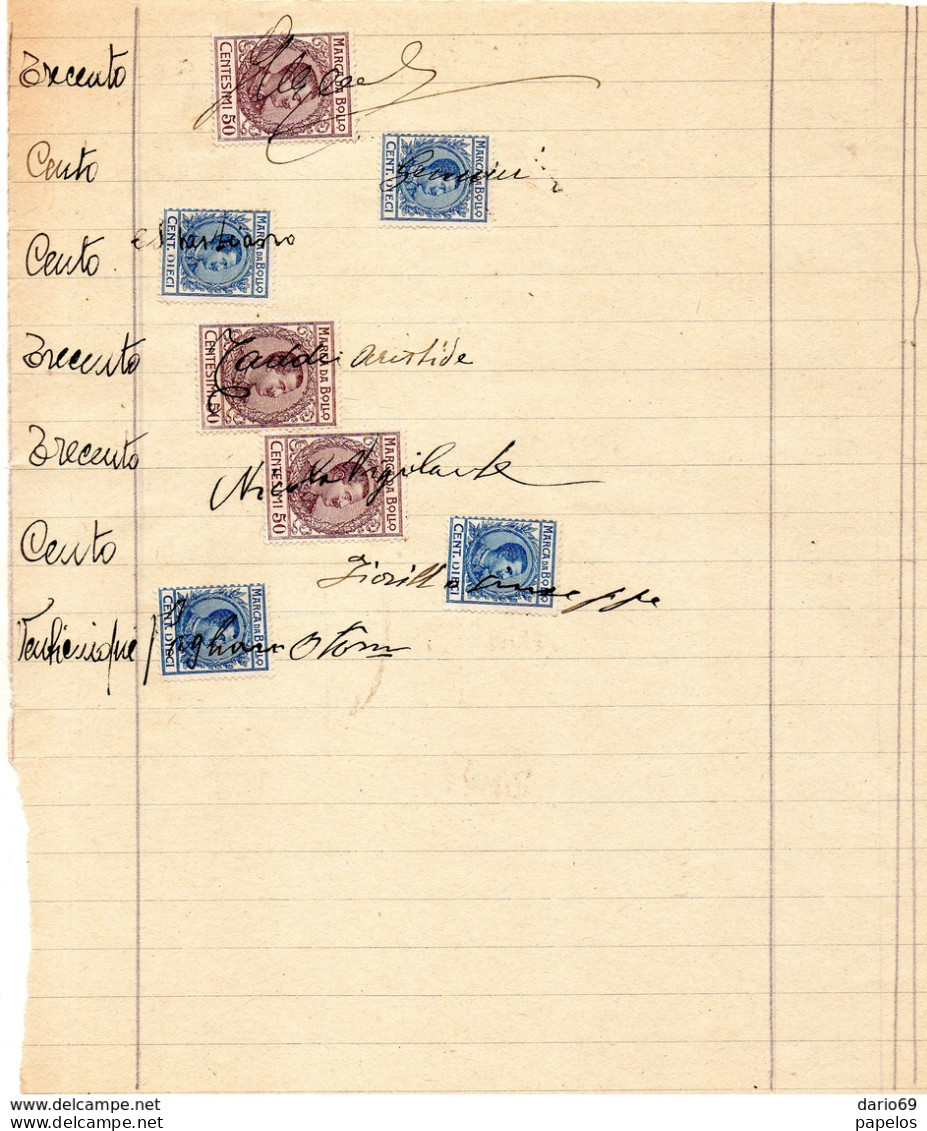 Trecento
MARCA DA BOLLO
CENTESIMI 50
Cento
MARCA DA BOLLO
CENT. DIECI
Gemini
Cento
MARCA DA BOLLO
CENT. DIECI
Trecento
MARCA DA BOLLO
CENTESIMI 50
Taddei Aristide
Trecento
MARCA DA BOLLO
CENTESIMI 50
Nicola Vigilante
Cento
MARCA DA BOLLO
CENT. DIECI
Fiorillo Giuseppe
Venticinque
MARCA DA BOLLO
CENT. DIECI
www.delcampe.net
dario69
www.delcampe.net
papelos